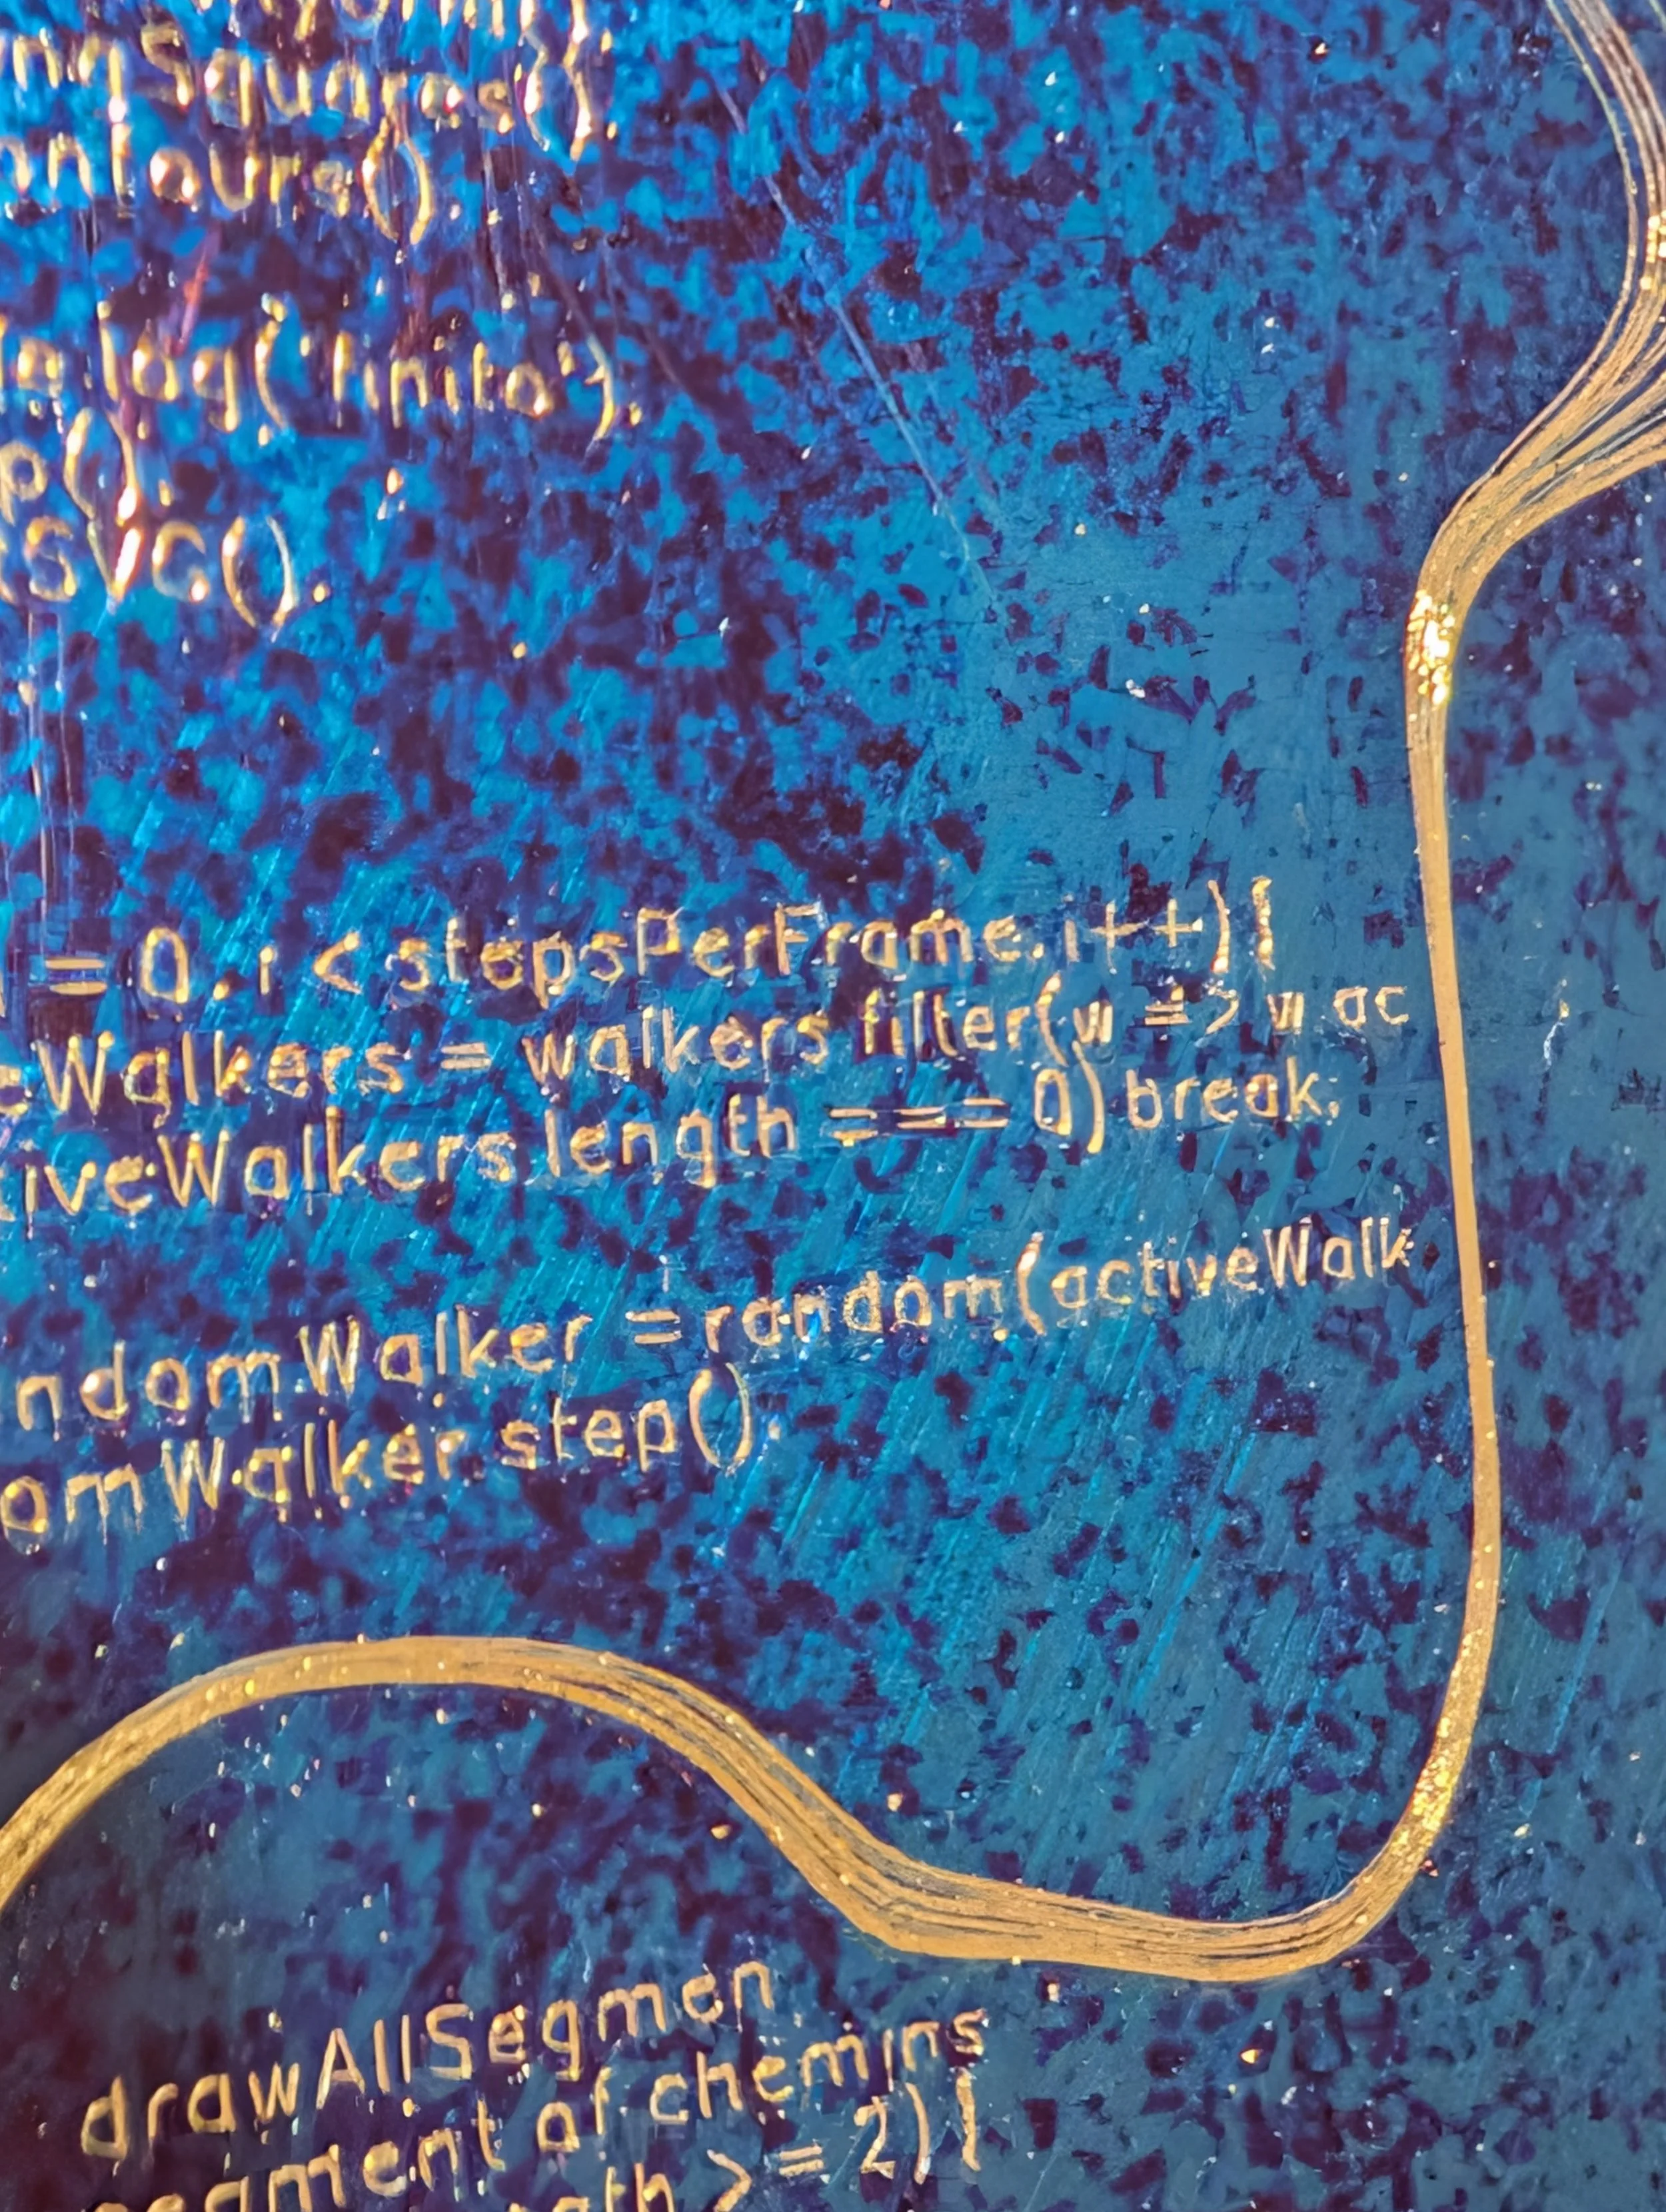 ngSquares()
ontours()
le.log('finito');
p();
tSVG();
= 0. i < stepsPerFrame. i++) {
eWalkers = walkers filter(w => w ac
tiveWalkers length === 0) break;
ndomWalker = random(activeWalk
omWalker step();
drawAllSegmen
egment of chemins
gth >= 2) {